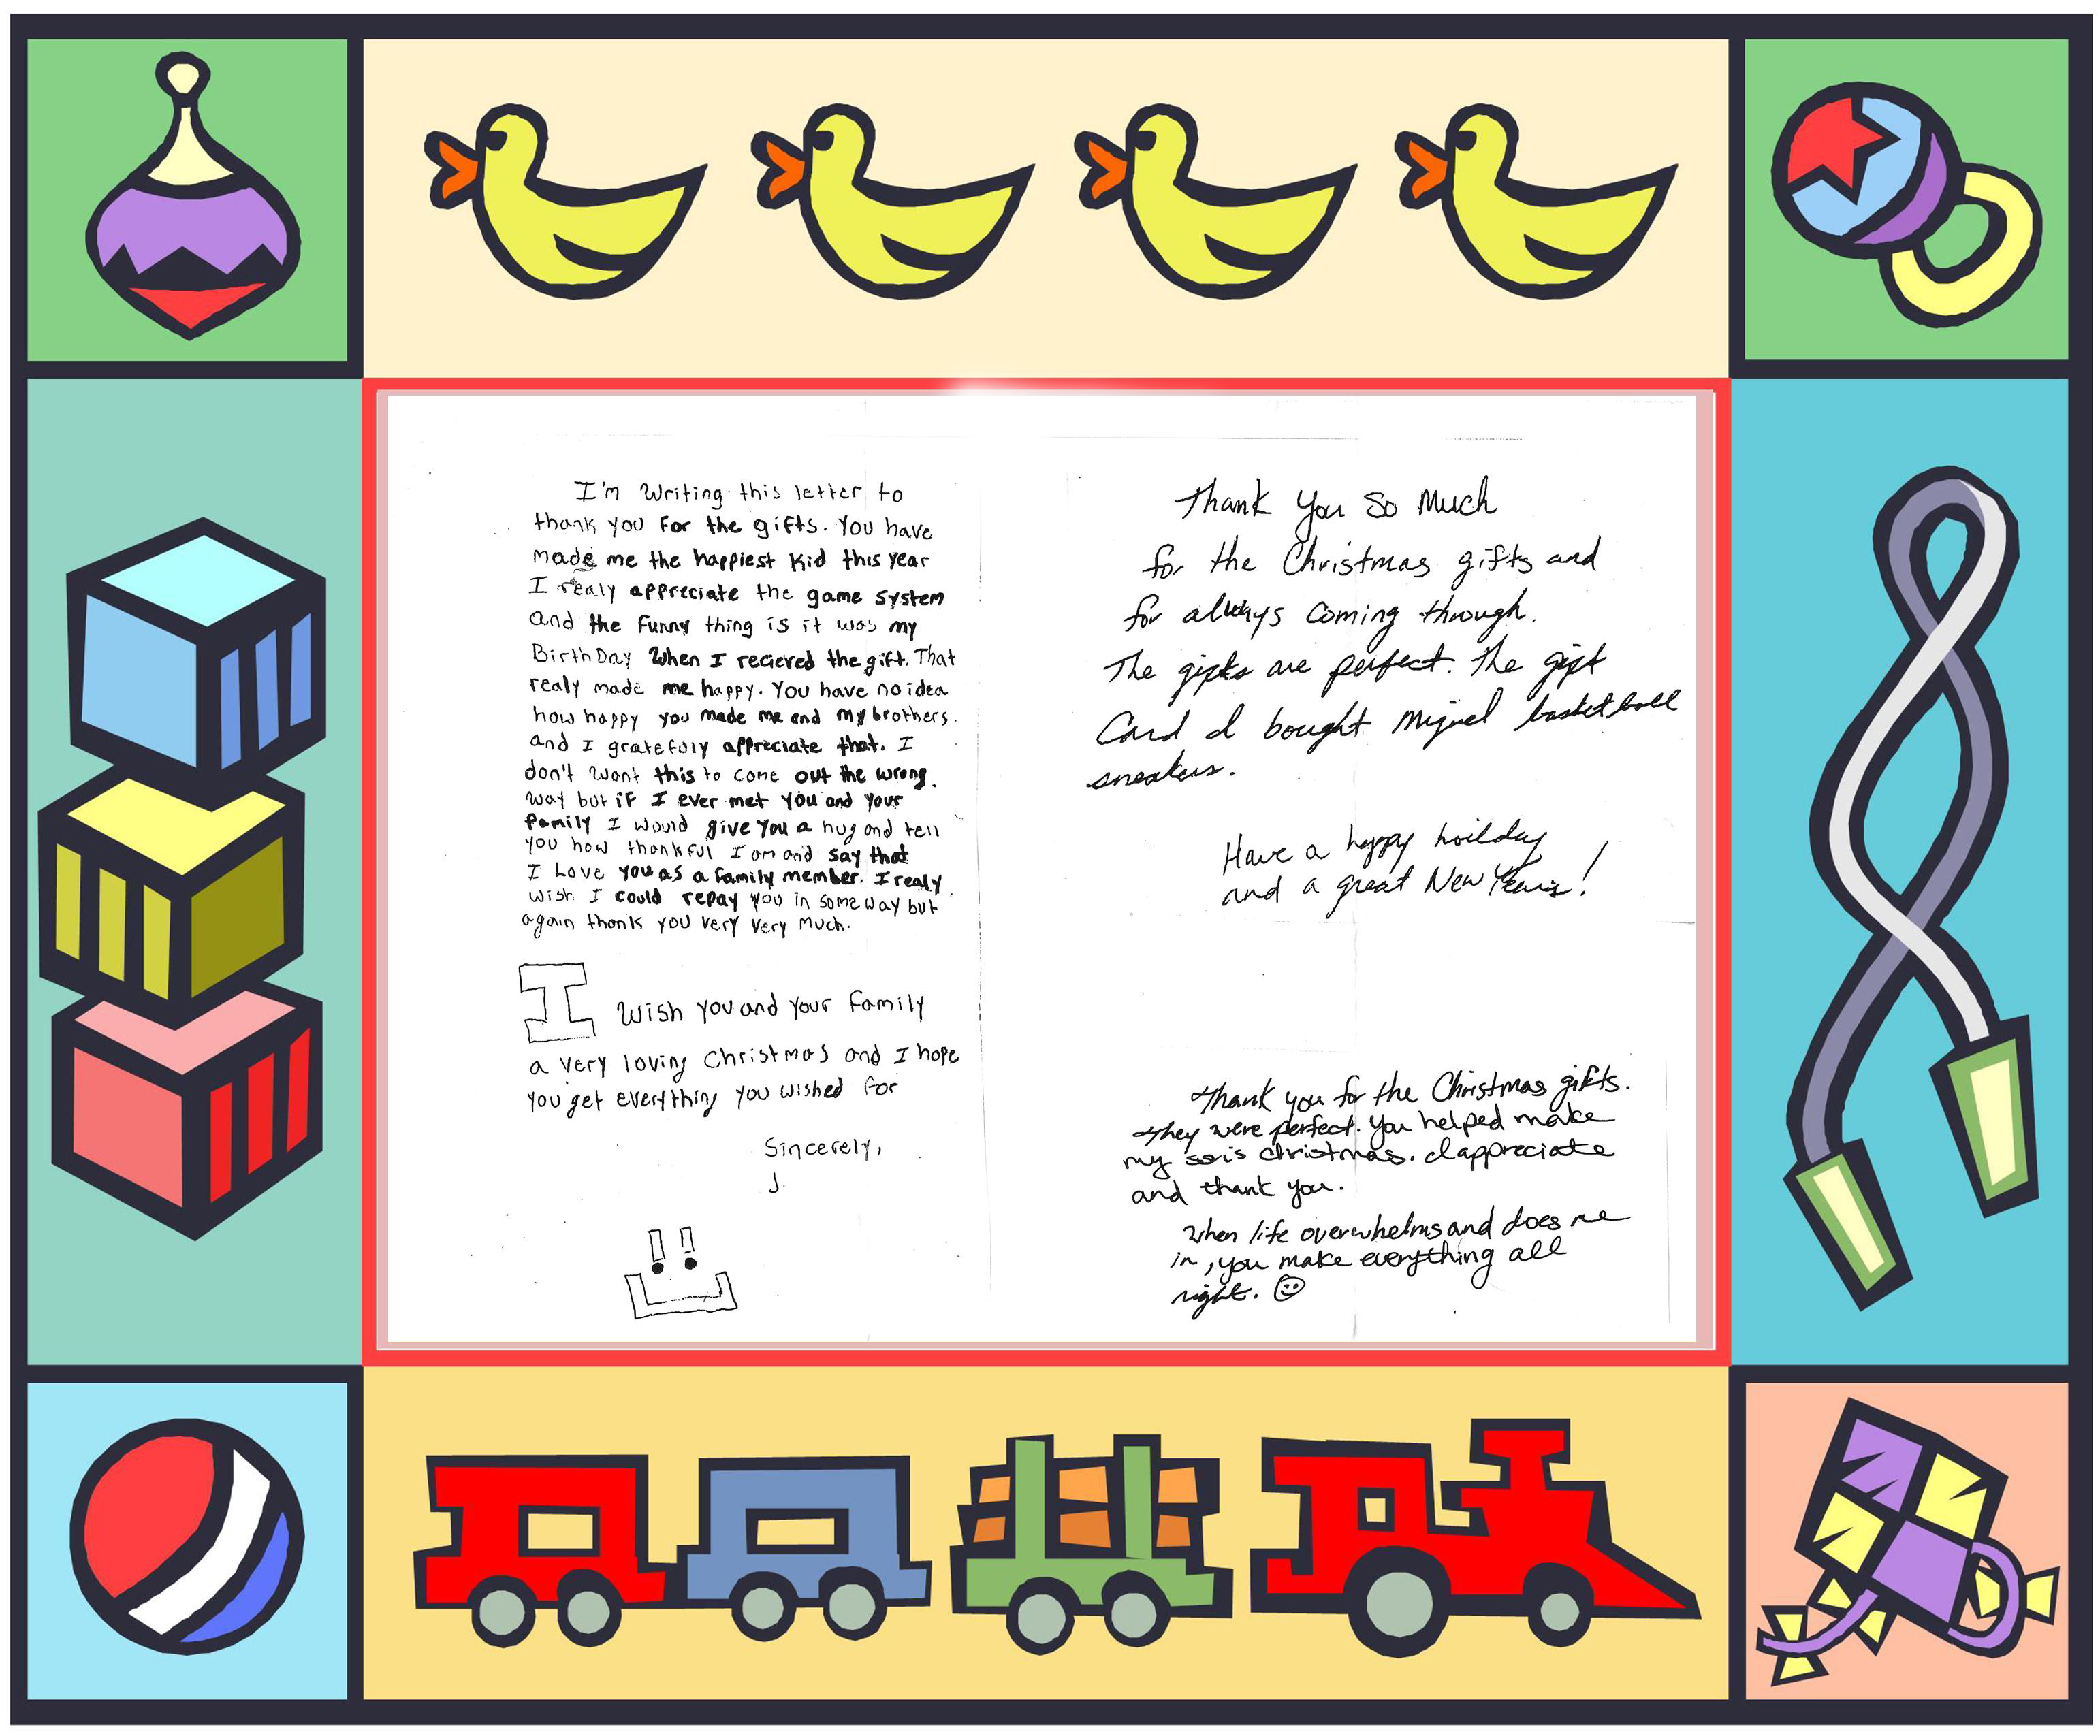 I'm writing this letter to
thank you for the gifts. You have
made me the happiest kid this year
I realy appreciate the game system
and the funny thing is it was my
BirthDay when I recieved the gift. That
realy made me happy. You have no idea
how happy you made me and my brothers.
and I gratefuly appreciate that. I
don't want this to come out the wrong.
way but if I ever met you and your
family I would give you a hug and tell
you how thankful I am and say that
I Love you as a family member. I realy
wish I could repay you in some way but
again thank you very very much.
I wish you and your family
a very loving Christmas and I hope
you get everything you wished for
Sincerely,
J.
Thank You So Much
for the Christmas gifts and
for always coming through.
The gifts are perfect. The gift
Card I bought Miguel basketball
sneakers.
Have a happy hoilday
and a great New Years!
Thank you for the Christmas gifts.
They were perfect. You helped make
my christmas. I appreciate
and thank you.
When life overwhelms and does me
in, you make everything all
right.